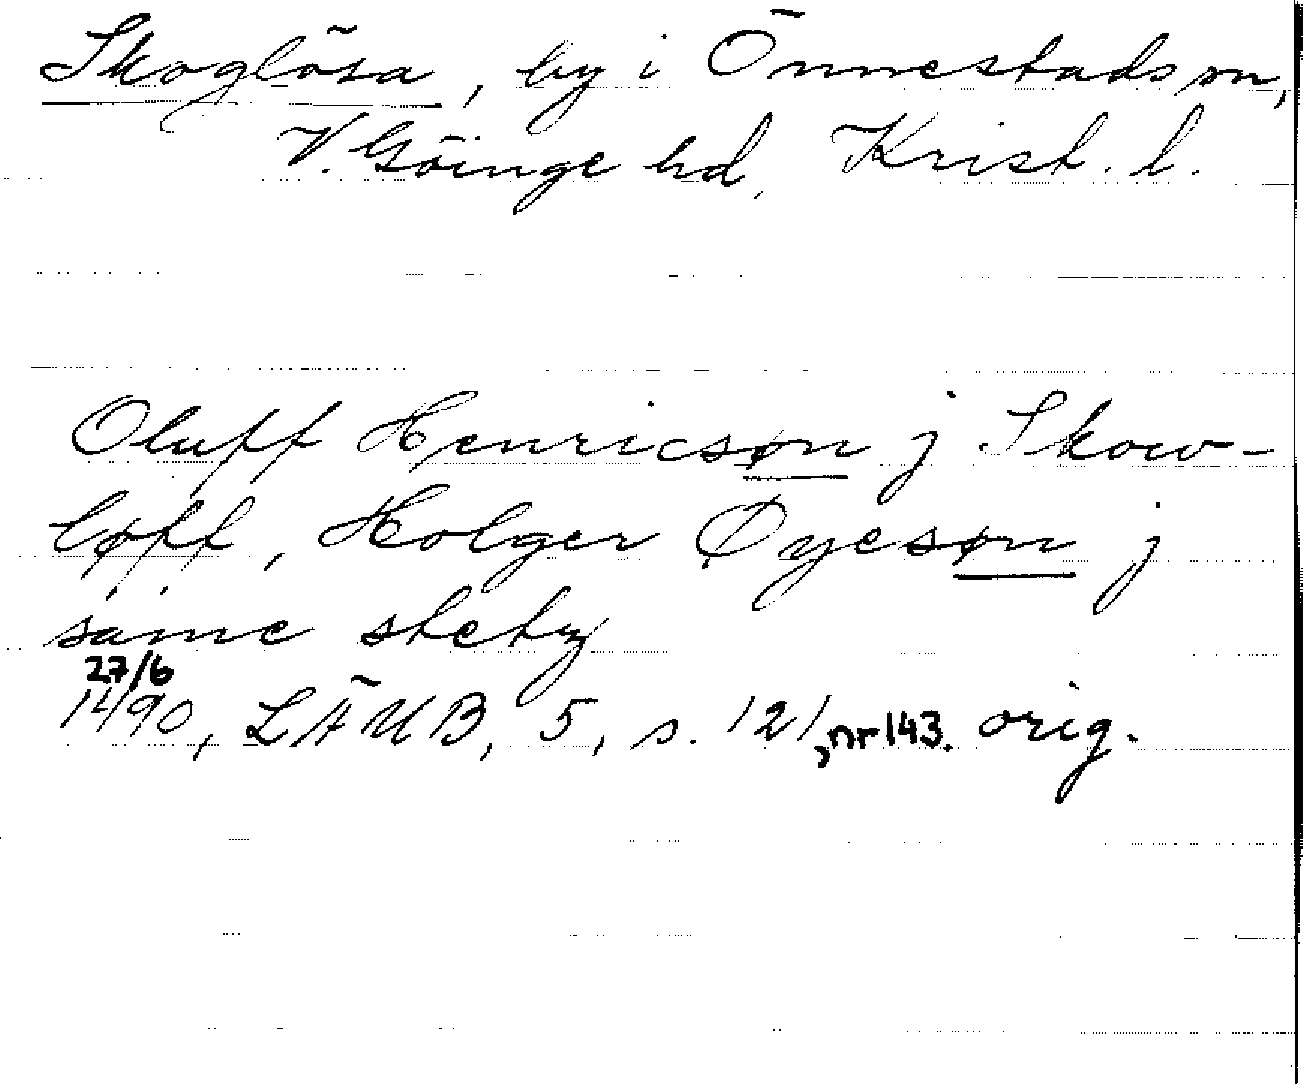 Skoglösa, by i Önnestads sn,
V. Göinge hd, Krist. l.
Oluff Henricsøn j Skow-
løff, Holger Øyesøn j
same stety
27/6
1490, LÄUB, 5, s. 121, nr 143. orig.